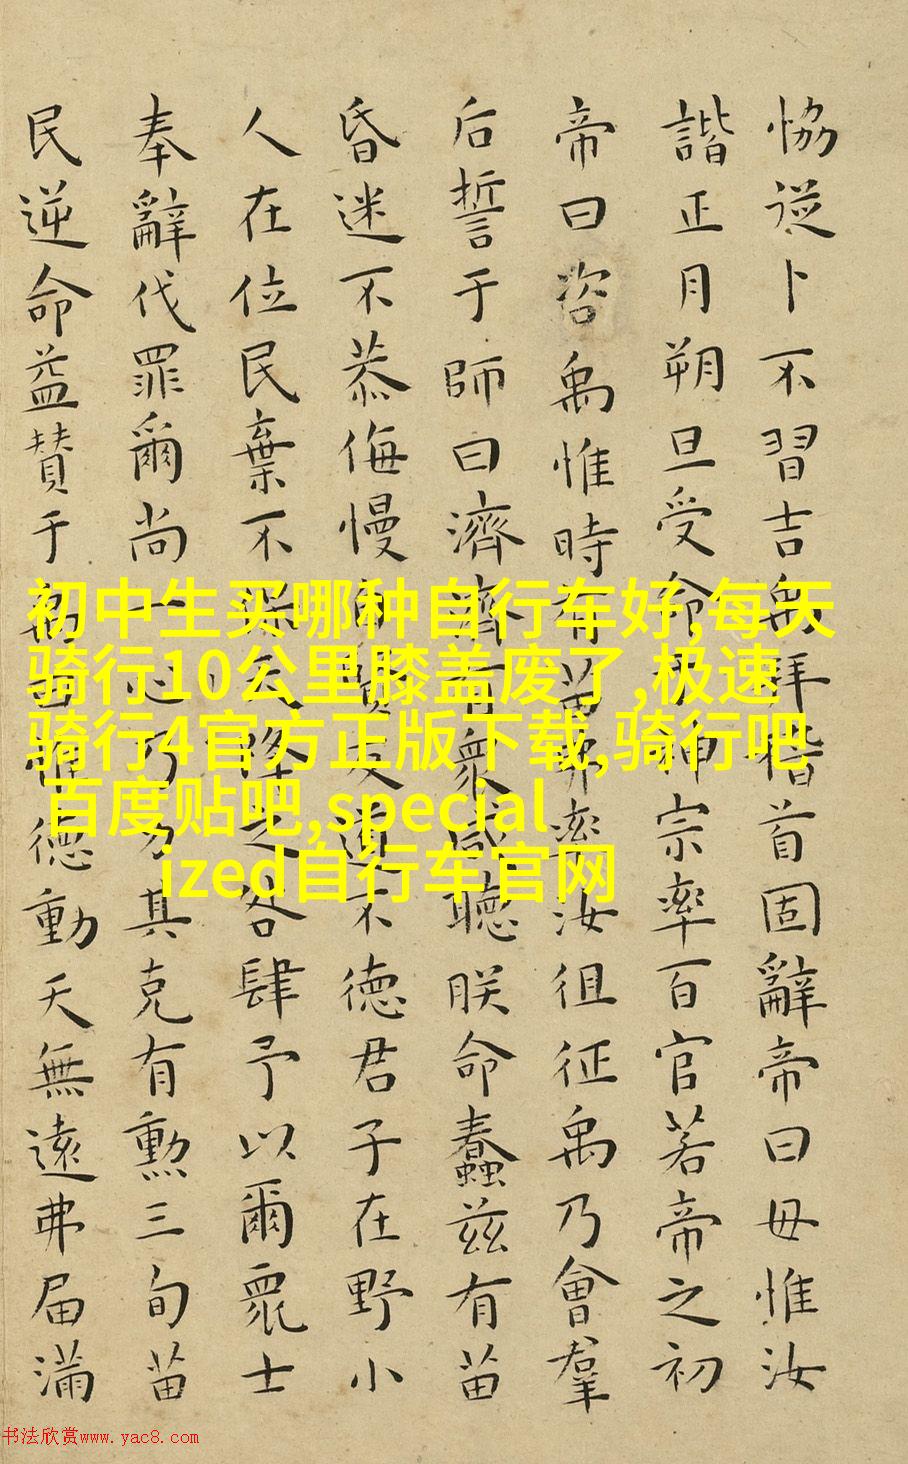 恊從卜不習吉禹拜稽首固辭帝曰毋惟汝
諧正月朔旦受命于神宗率百官若帝之初
帝曰咨禹惟時有苗弗率汝徂征禹乃會羣
后誓于師曰濟濟有衆咸聽朕命蠢兹有苗
昏迷不恭侮慢自賢反道不德君子在野小
人在位民棄不保天降之咎肆予以爾衆士
奉辭伐罪爾尚一心乃力其克有勲三旬苗
民逆命益贊于禹曰惟德動天無遠弗届滿
初中生买哪种自行车好,每天
骑行10公里膝盖废了,极速
骑行4官方正版下载,骑行吧
百度贴吧,special
ized自行车官网
书法欣赏www.yac8.com